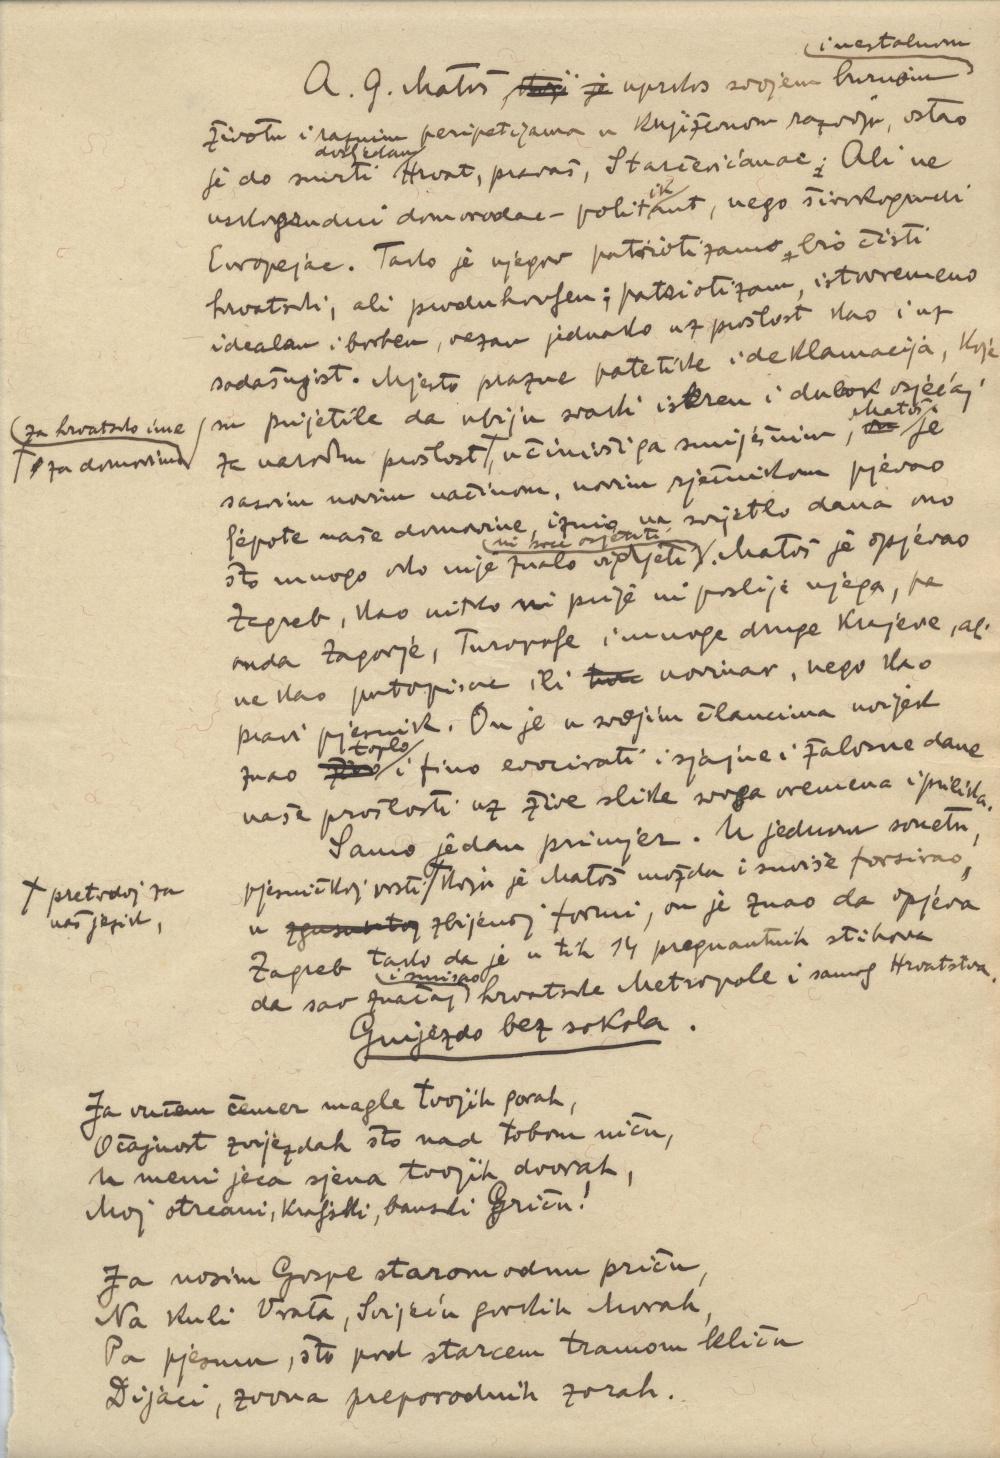 i nestalnom
A. G. Matoš, koji je uprkos svojem burnom
životu i raznim peripetijama u književnom razvoju, ostao
dosljedan
je do smrti Hrvat, pravaš, Starčevićanac; Ali ne
ik
uskogrudni domorodac - politikant, nego širokogrudi
Evropejac. Tako je njegov patriotizam bio čisti
hrvatski, ali produhovljen; patriotizam, istovremeno
idealan i borben, vezan jednako uz prošlost kao i uz
sadašnjost. Mjesto prazne patetike i deklamacija, koje
su prijetile da ubiju svaki iskren i dubok osjećaj
za hrvatsko ime
za domovinu
Matoš
za narodnu prošlost, učinivši ga smiješnim, je
sasvim novim načinom, novim rječnikom pjevao
ljepote naše domovine, iznio na svijetlo dana ono
ni htio osjetiti
što mnogo oko nije znalo vidjeti. Matoš je opjevao
Zagreb, kao nitko ni prije ni poslije njega, pa
onda Zagorje, Turopolje i mnoge druge krajeve, ali
ne kao putopisac ili novinar, nego kao
pravi pjesnik. On je u svojim člancima uvijek
toplo
znao i fino evocirati i sjajne i žalosne dane
naše prošlosti uz žive slike svoga vremena i prilika.
Samo jedan primjer. U jednom sonetu,
pretvrdoj za
naš jezik,
pjesničkoj vrsti koju je Matoš možda i suviše forsirao,
u zgusnutoj zbijenoj formi, on je znao da opjeva
Zagreb tako da je u tih 14 pregnantnih stihova
i smisao
da sav značaj hrvatske Metropole i samog Hrvatstva.
Gnijezdo bez sokola.
Ja vučem čemer magle tvojih gorah,
Očajnost zvijezdah što nad tobom niču,
U meni jeca sjena tvojih dvorah,
Moj otrcani, kraljski, banski Griču!
Ja nosim Gospe staromodnu priču,
Na kuli Vrata, Svijeću gorskih Morah,
Pa pjesmu, što pod starcem tramom kliču
Dijaci, zovna preporodnih zorah.